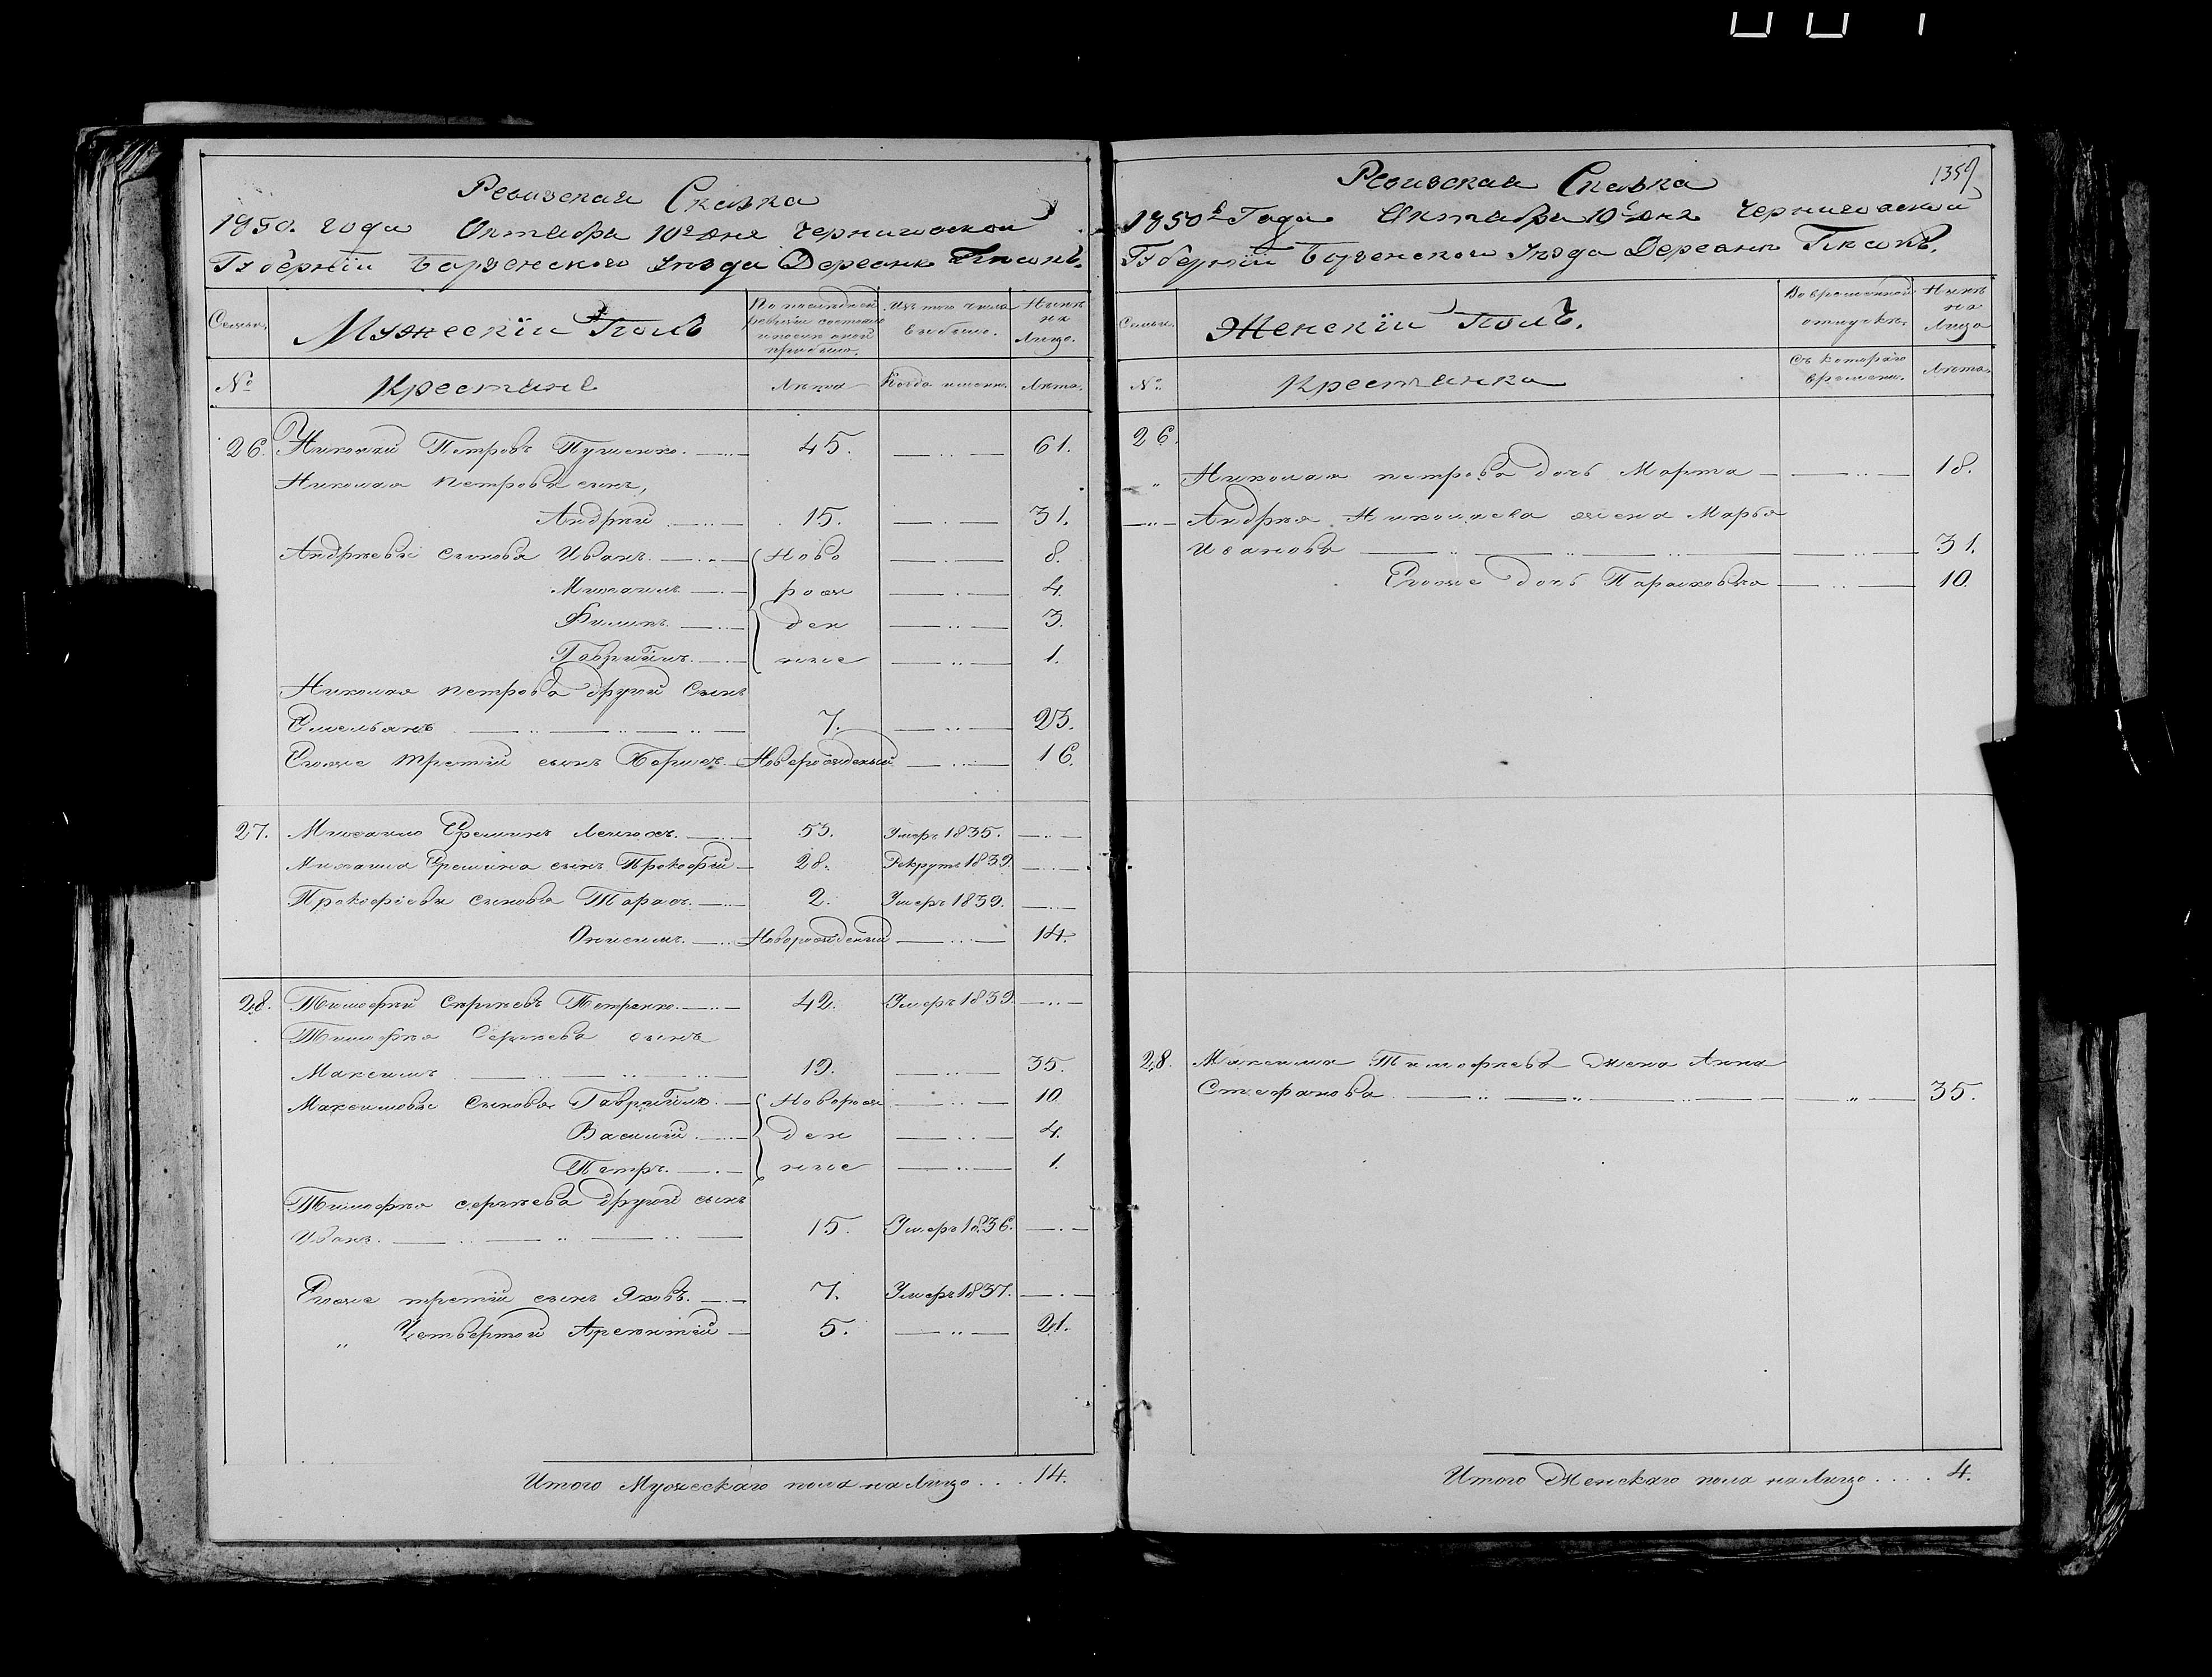 Ревизская Сказка
1850. года Октября 10го дня Черниговской
Губернїи Борзенского Уезда Деревни
Семьи.
Мужескїй Полъ
По последней ревизїи состояло и после оной прибыло.
Изъ того числа выбыло.
Ныне на Лицо.
№
Крестьяне
Лета
Когда именно.
Лета.
26. Николай Петровъ Пушенко. 45. 61.
Николая Петрова сынъ,
Андрей 15. 31.
Андреевы сыновья Иванъ. Ново 8.
Михаилъ рож 4.
Филипъ. ден 3.
Гавриилъ. ные 1.
Николая Петрова другой сынъ
Емельянъ 7. 23.
Егоже третїй сынъ Борисъ. Новорожденый 16.
27. Михайло Ереминъ 53. Умеръ 1835.
Михаила Еремина сынъ Прокофїй 28. Рекрутъ 1839.
Прокофїевы сыновья Тарасъ. 2. Умеръ 1839.
Онисимъ. Новорожденый 14.
28. Тимофей Сергеевъ Петренко. 42. Умеръ 1839.
Тимофея Сергеева сынъ
Максимъ 19. 35.
Максимовы Сыновья Гавриилъ. Новорож 10.
Василїй. ден 4.
Петръ. ные 1.
Тимофея сергеева другой сынъ
Иванъ. 15. Умеръ 1836.
Егоже третїй сынъ Яковъ. 7. Умеръ 1837.
" Четвертой 5. 21.
Итого Мужескаго пола на Лицо.... 14.
1359
Ревизская Сказка
1850го Года Октября 10го дня Черниговской
Губернїи Борзенского Уезда Деревни
Семьи.
Женскїй Полъ.
Во временной отлучке.
Ныне на Лицо
№.
Крестьянка
Съ котораго времени.
Лета.
26.
" Николая петрова дочь Марфа 18.
Андрея Николаева жена Марья
Иванова 31.
Егоже дочь Парасковья 10.
28. Максима Тимофеева Жена Анна
Стефанова 35.
Итого Женскаго пола на Лицо.... 4.